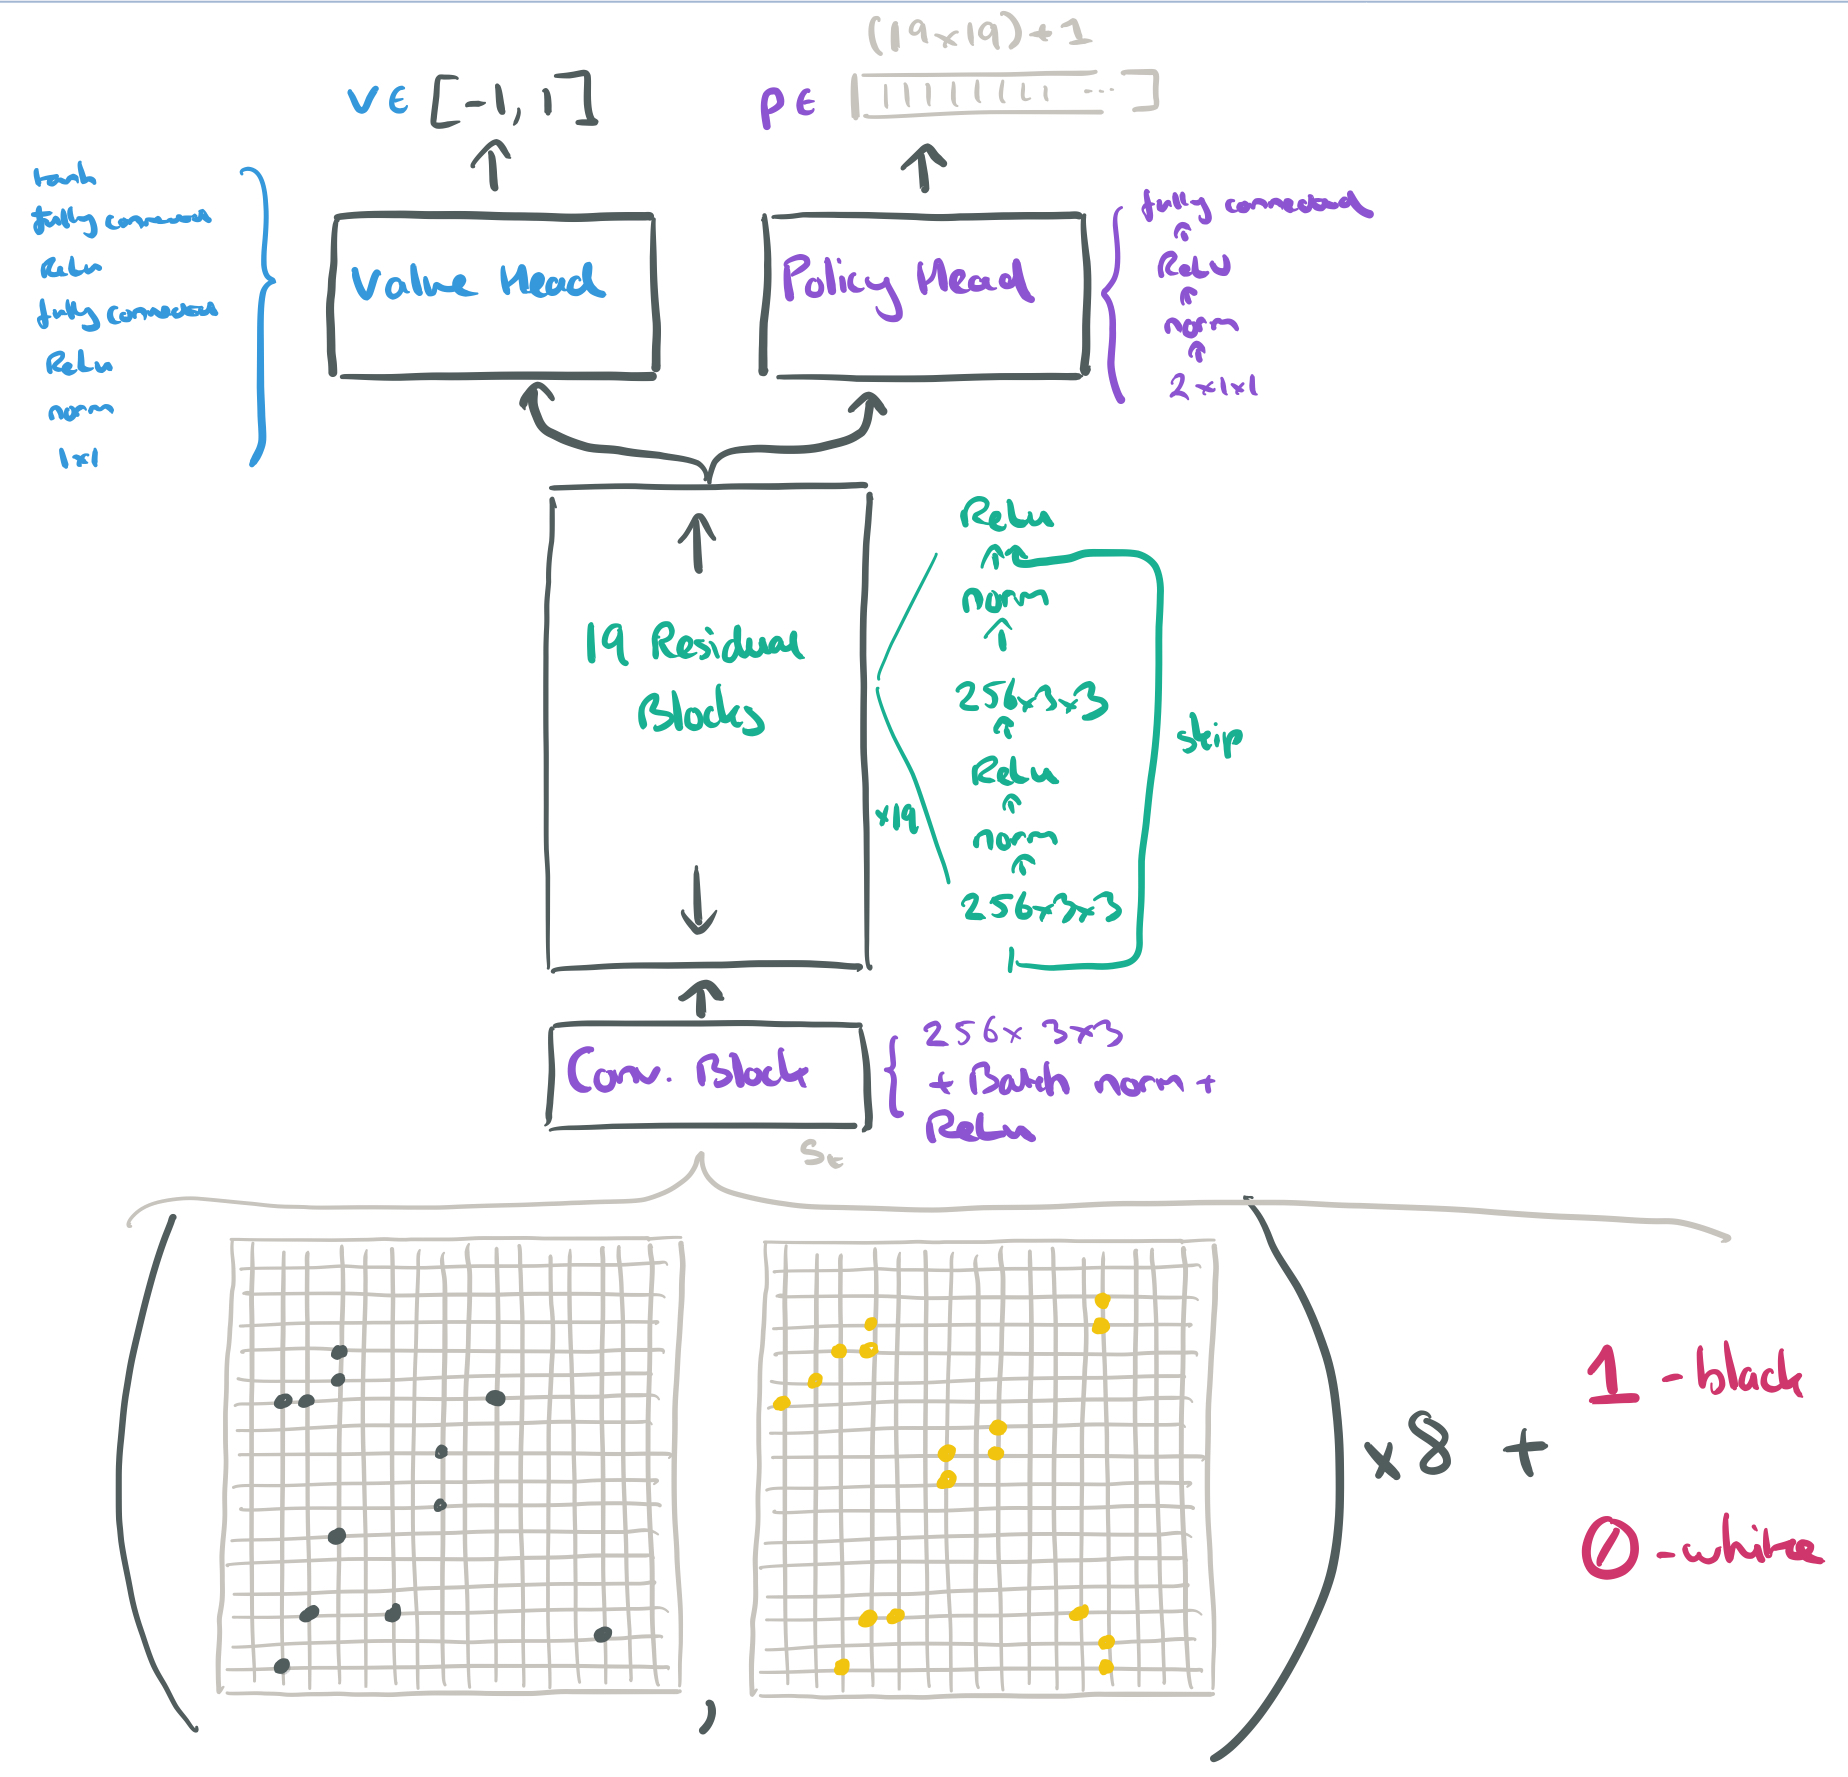 (19x19)+1
v ∈ [-1, 1]
p ∈ [ ... ]
tanh
fully connected
Relu
fully connected
Relu
norm
1x1
Value Head
Policy Head
fully connected
Relu
norm
2x1x1
19 Residual
Blocks
x19
Relu
norm
256x3x3
Relu
norm
256x3x3
skip
Conv. Block
256x 3x3
+ Batch norm +
Relu
St
,
x8 +
1 - black
0 - white